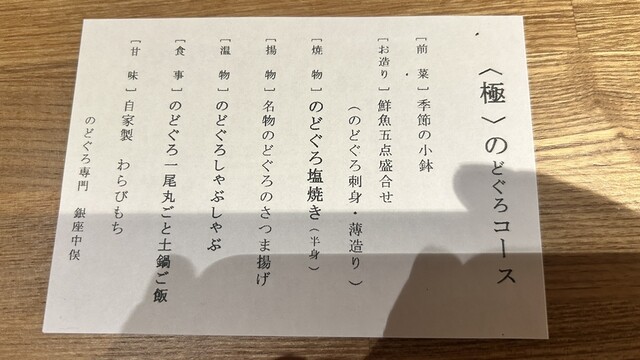 〈極〉のどぐろコース
［前　菜］季節の小鉢
［お造り］鮮魚五点盛合せ
（のどぐろ刺身・薄造り）
［焼　物］のどぐろ塩焼き（半身）
［揚　物］名物のどぐろのさつま揚げ
［温　物］のどぐろしゃぶしゃぶ
［食　事］のどぐろ一尾丸ごと土鍋ご飯
［甘　味］自家製　わらびもち
のどぐろ専門　銀座中俣